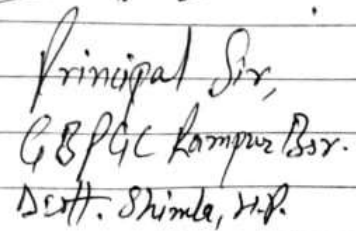 Principal Sir,
GBPGC Rampur Bsr.
Distt. Shimla, H.P.